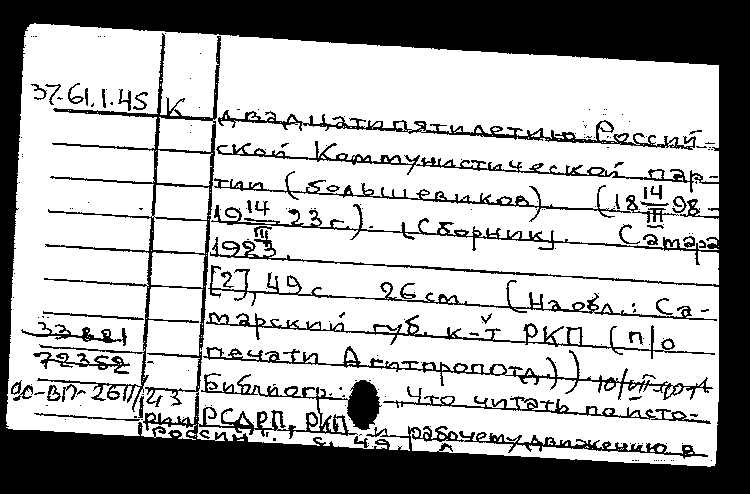 37.61.1.45 К
двадцатипятилетию Россий-
ской Коммунистической пар-
тии (большевиков). (18 14/III 98 -
19 14/III 23 г.). [Сборник]. Самара
1923.
[2], 49 с. 26 см. (На обл.: Са-
марский губ. к-т РКП (п/о
33881
печати Агитпропотд))
72352
Библиогр.: „Что читать по исто-
90-ВП-2611/243
рии РСДРП, РКП и рабочему движению в
России". с. 49.